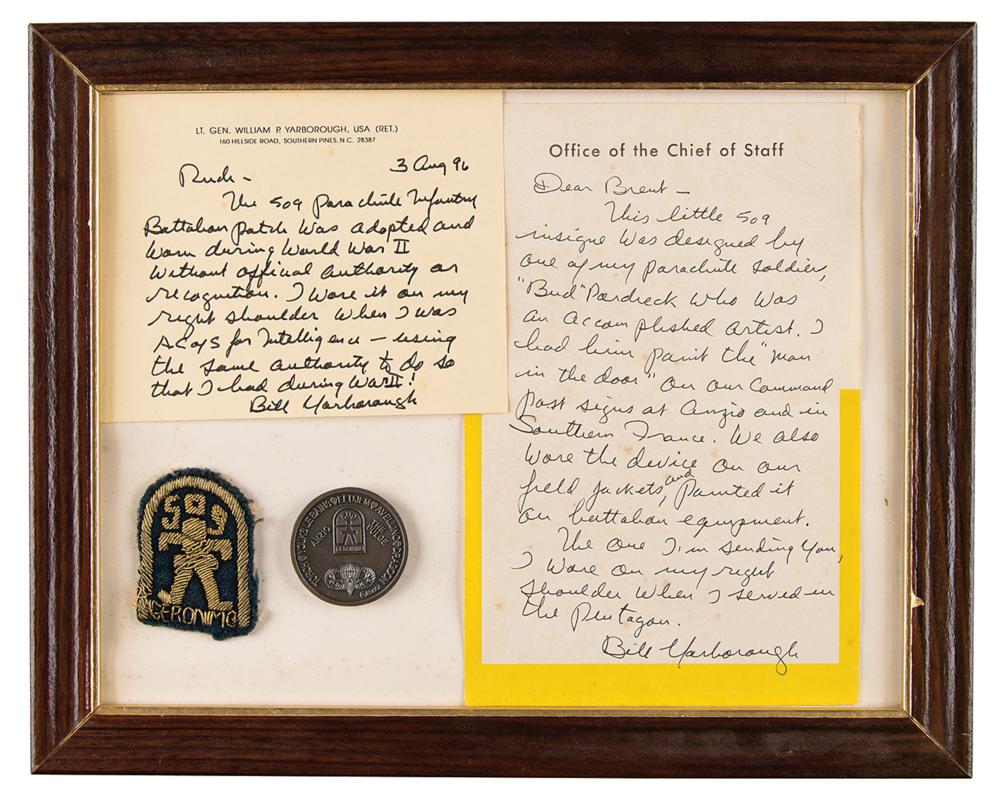 LT. GEN. WILLIAM P. YARBOROUGH, USA (RET.)
160 HILLSIDE ROAD, SOUTHERN PINES, N.C. 28387
3 Aug 96
Rudi -
The 509 Parachute Infantry
Battalion patch was adopted and
worn during World War II
without official authority or
recognition. I wore it on my
right shoulder when I was
ACofS for Intelligence - using
the same authority to do so
that I had during WWII!
Bill Yarborough
Office of the Chief of Staff
Dear Brent -
This little 509
insigne was designed by
one of my parachute soldier,
"Bud" Pardreck who was
an accomplished artist. I
had him paint the "man
in the door" on our Command
Post signs at Anzio and in
Southern France. We also
wore the device on our
field jackets, and painted it
on battalion equipment.
The one I'm sending you,
I wore on my right
shoulder when I served in
the Pentagon.
Bill Yarborough
509
GERONIMO
TORCH YOUKS LE BAINS EL DJEM AVELLINO DRAGOON
ANZIO
THE BULGE
GERONIMO